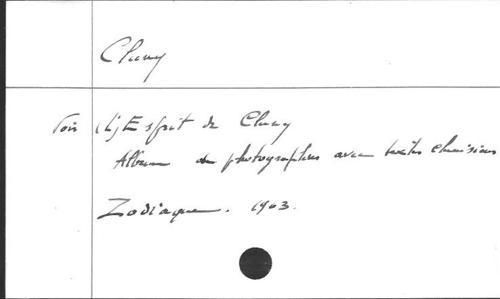 Cluny
Voir (L') Esprit de Cluny
Album de photographies avec textes choisis
Zodiaque. 1963.